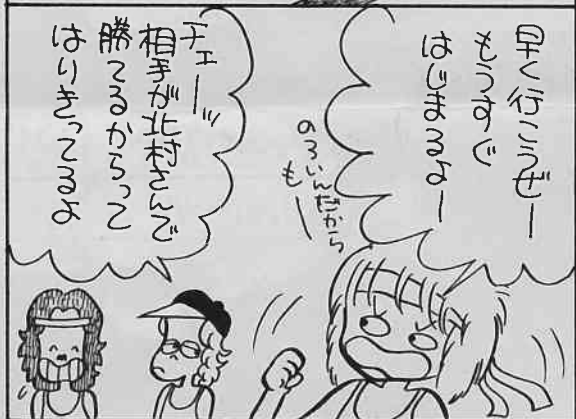 早く行こうぜー
もうすぐ
はじまるよー
のろいんだから
もー
チェーッ
相手が北村さんで
勝てるからって
はりきってるよ